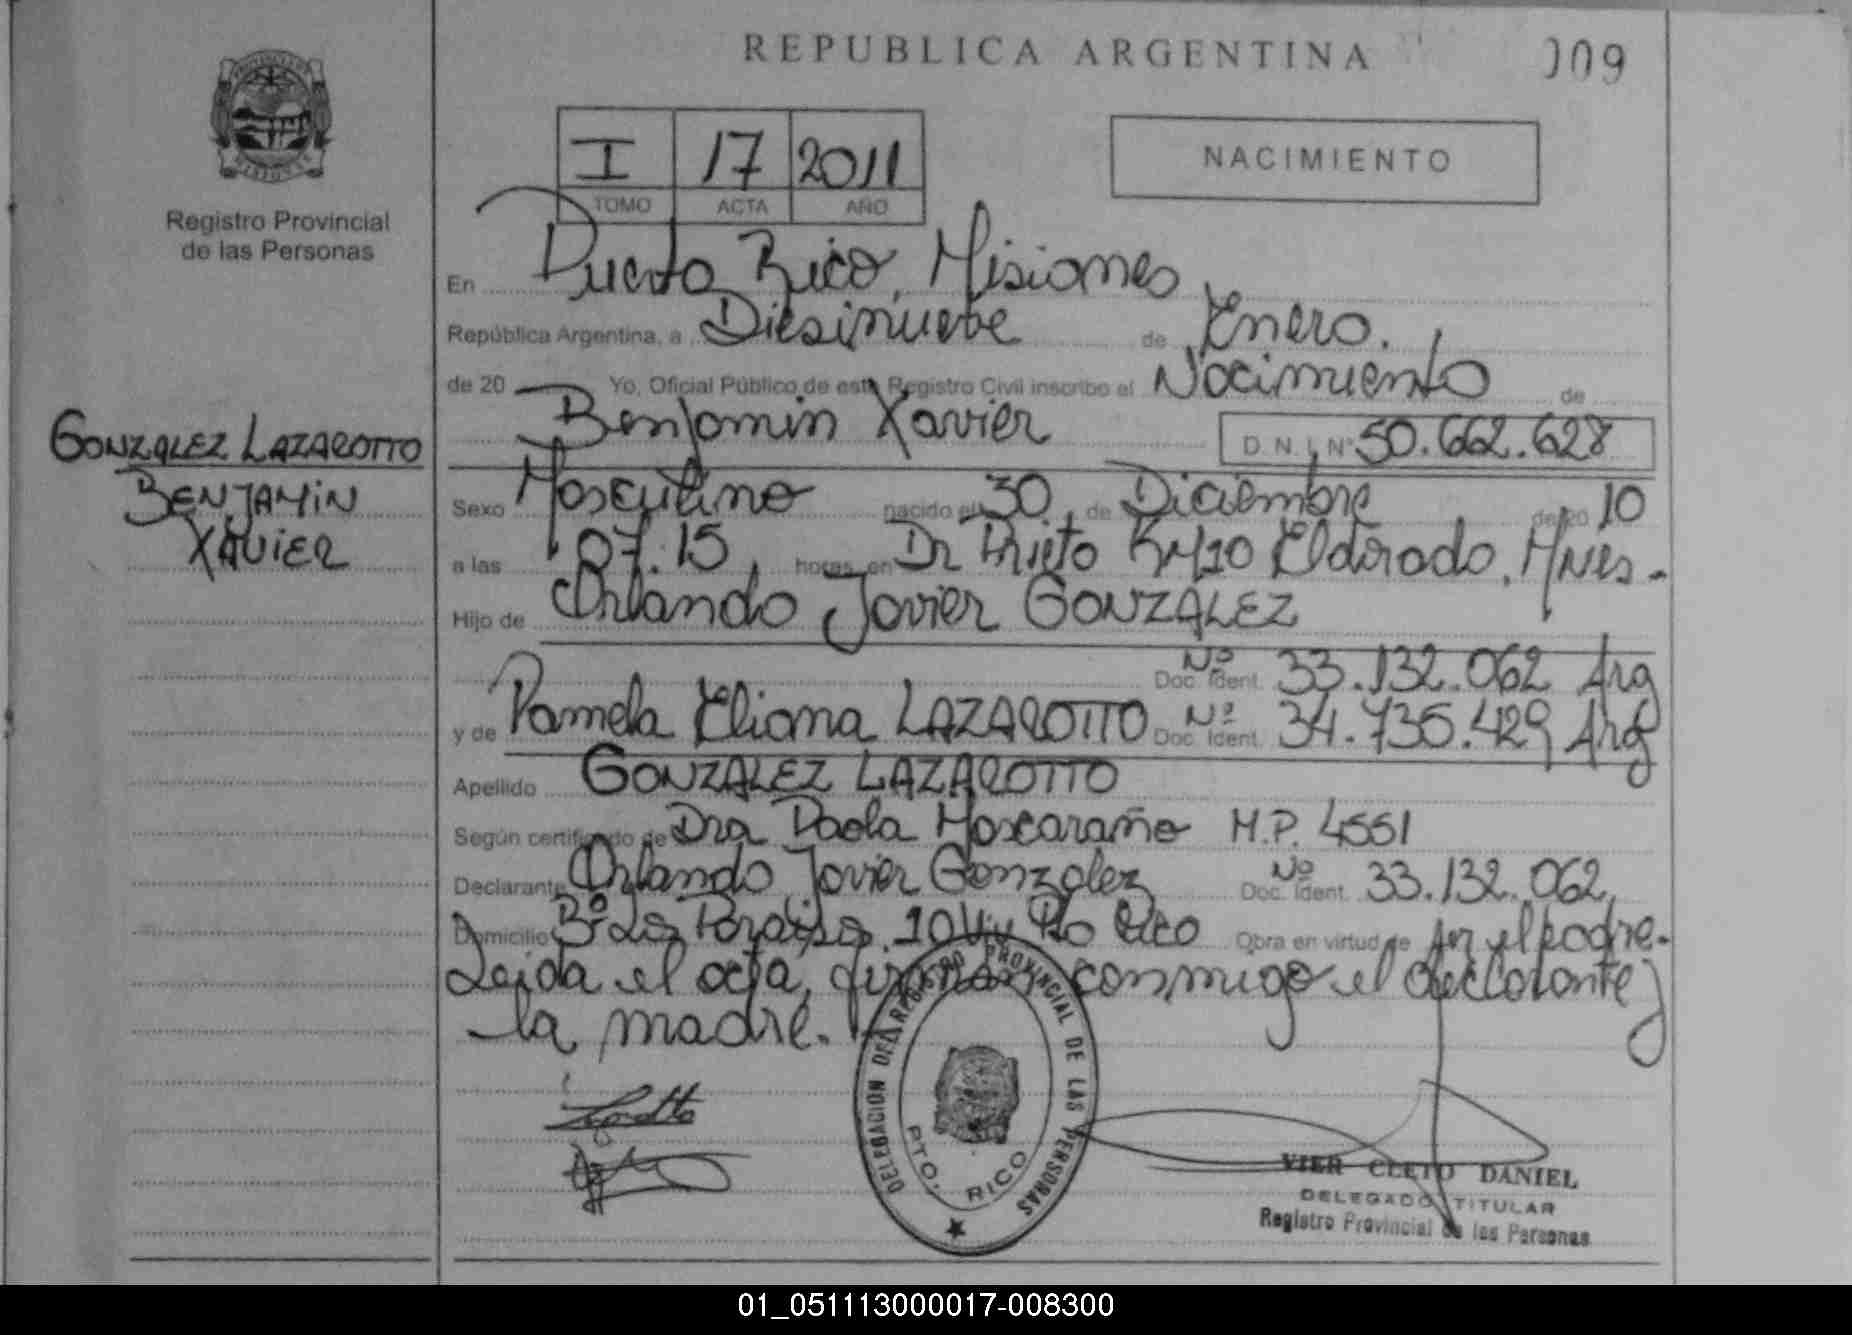 REPUBLICA ARGENTINA
009
PROVINCIA DE MISIONES
Registro Provincial
de las Personas
I 17 2011
TOMO ACTA AÑO
NACIMIENTO
En Puerto Rico, Misiones
República Argentina, a Diesinueve de Enero.
de 20 Yo, Oficial Público de este Registro Civil inscribo el Nacimiento de
Benjamin Xavier D.N.I. Nº 50.662.628
GONZALEZ LAZAROTTO
BENJAMIN
XAVIER
Sexo Masculino nacido el 30 de Diciembre de 20 10
a las 07.15 horas, en Dr Prieto KM10 Eldorado, Mnes.-
Hijo de Orlando Javier GONZALEZ
Doc. Ident. Nº 33.132.062 Arg
y de Pamela Eliana LAZAROTTO Doc. Ident. Nº 34.735.429 Arg
Apellido GONZALEZ LAZAROTTO
Según certificado de Dra Paola Moscaraño M.P. 4551
Declarante Orlando Javier Gonzalez Doc. Ident. Nº 33.132.062,
Domicilio Bº Pto Rico Obra en virtud de ser el padre.-
Leida el acta, firman conmigo el declarante y
la madre.
DELEGACION DEL REGISTRO PROVINCIAL DE LAS PERSONAS
PTO. RICO
VIER CLETO DANIEL
DELEGADO TITULAR
Registro Provincial de las Personas
01_051113000017-008300